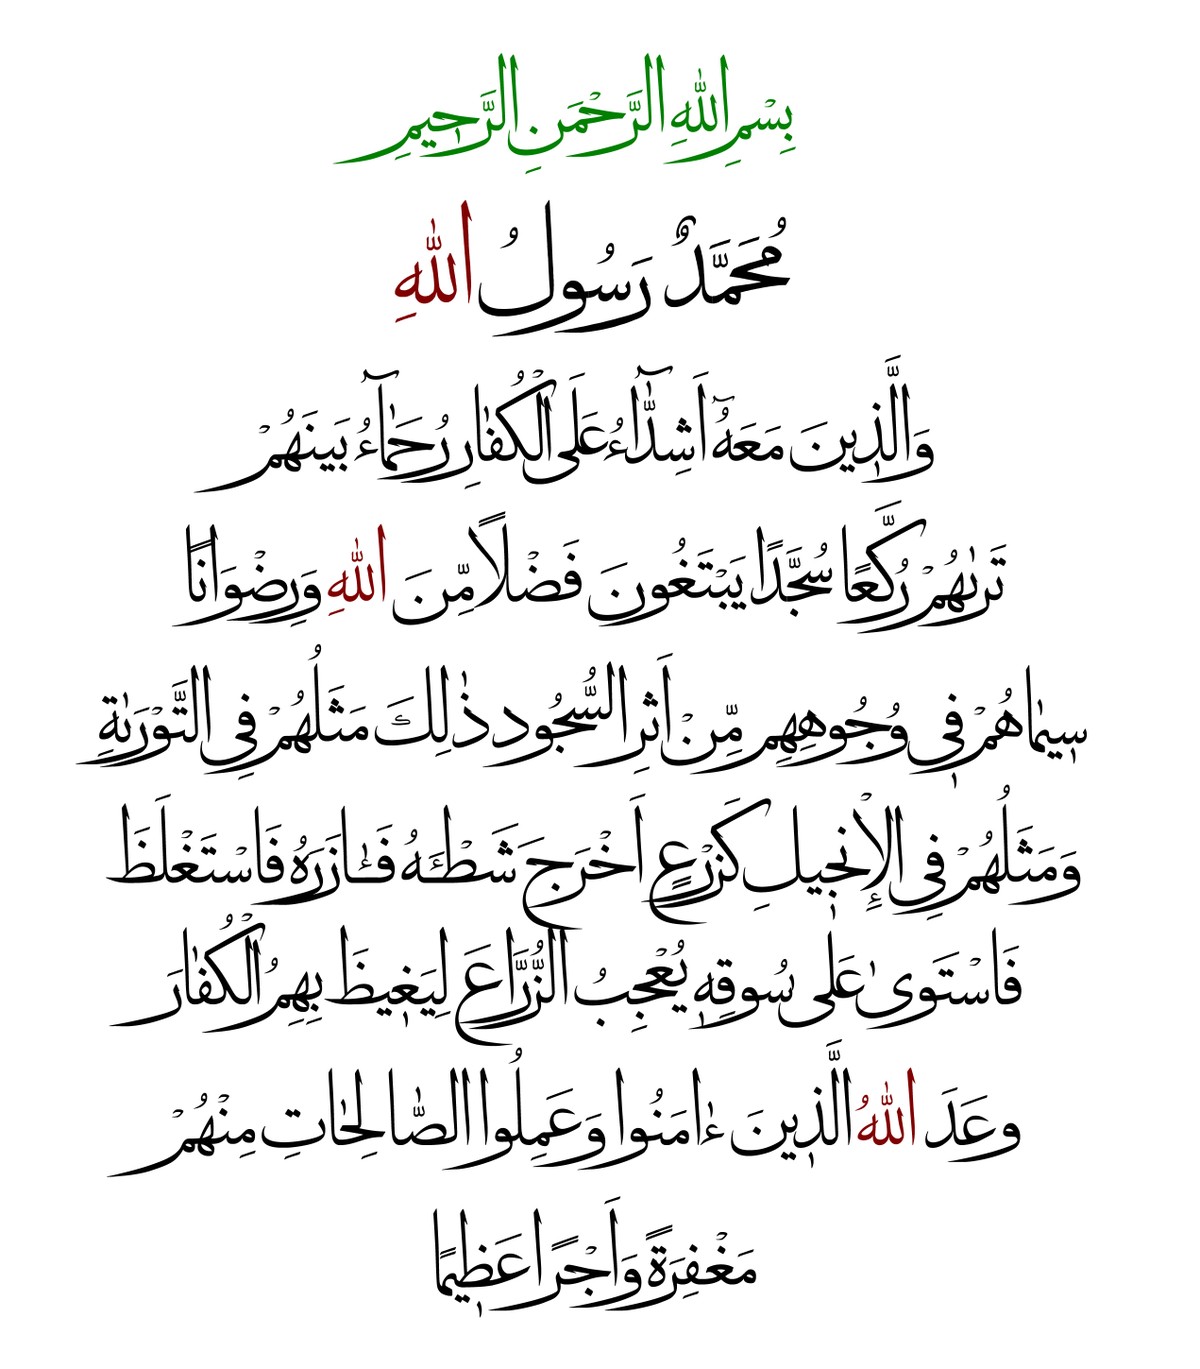 بِسْمِ اللّٰهِ الرَّحْمَنِ الرَّحِيمِ
مُحَمَّدٌ رَسُولُ اللّٰهِ
وَالَّذِينَ مَعَهُٓ اَشِدَّٓاءُ عَلَى الْكُفَّارِ رُحَمَٓاءُ بَينَهُمْ
تَرٰىهُمْ رُكَّعًا سُجَّدًا يَبْتَغُونَ فَضْلًا مِّنَ اللّٰهِ وَرِضْوَانًا
سِيمٰاهُمْ فِى وُجُوهِهِمِ مِّنْ اَثِرِ السُّجُود ذٰلِكَ مَثَلُهُمْ فِى التَّوْرَىٰةِ
وَمَثَلُهُمْ فِى الْإِنجِيلِ كَزَرْعٍ اَخْرَجَ شَطْـَٔهُ فَـَٔازَرَهُ فَاسْتَغْلَظَ
فَاسْتَوىٰ عَلٰى سُوقِهِ يُعْجِبُ الزُّرَّاعَ لِيَغِيظَ بِهِمُ الْكُفّٰارَ
وعَدَ اللّٰهُ الَّذِينَ ءٰامَنُوا وَعَمِلُوا الصّٰالِحٰاتِ مِنْهُمْ
مَغْفِرَةً وَاَجْرًا عَظِيمًا